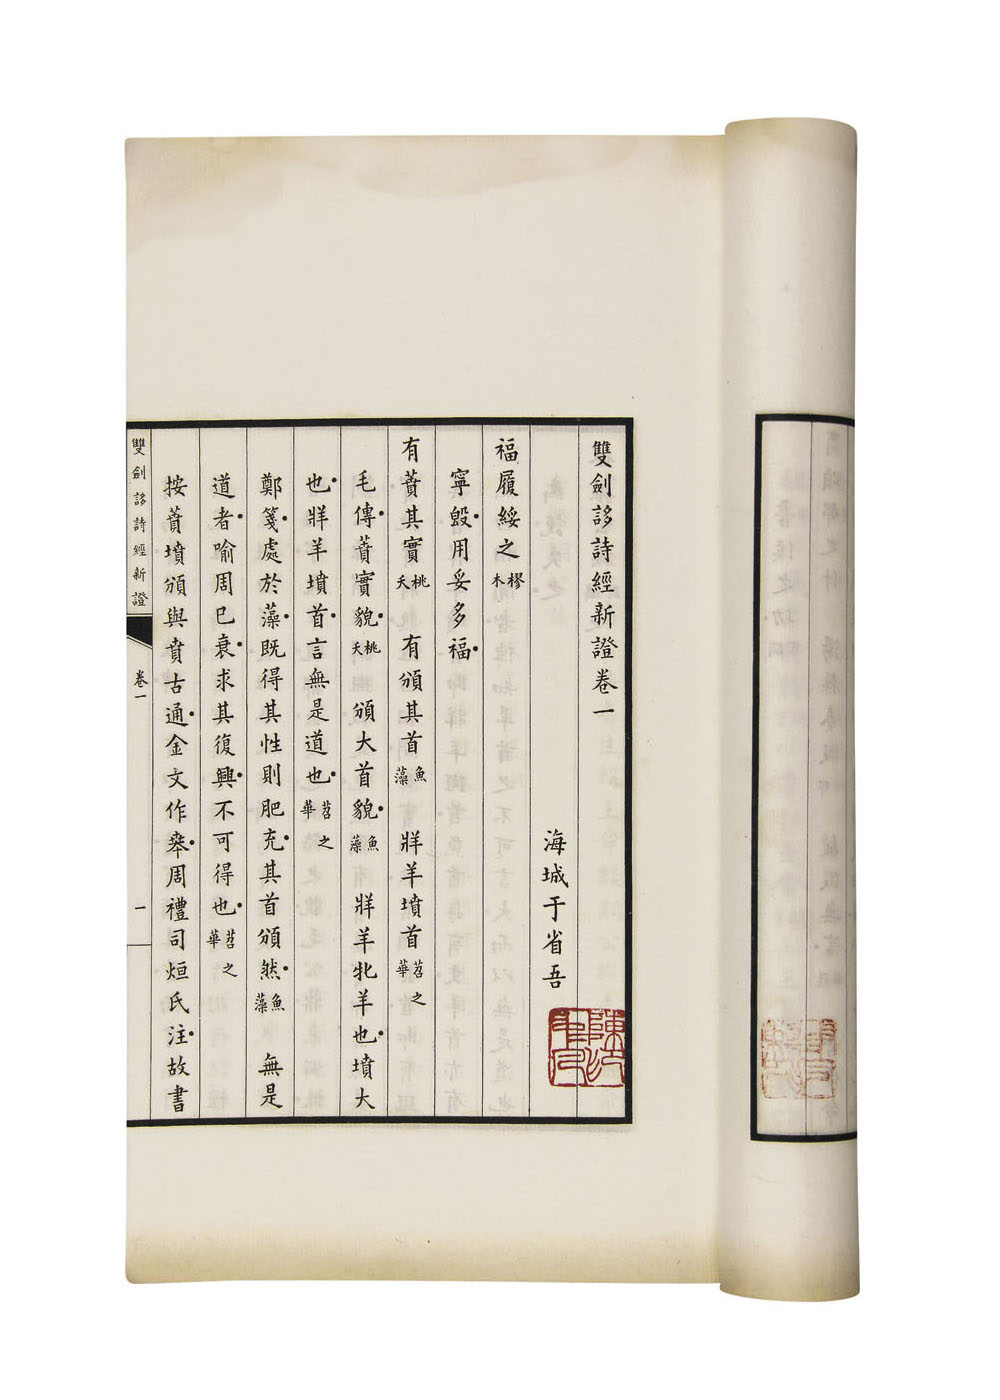 雙劍誃詩經新證卷一
海城于省吾
福履綏之樛木
寧毁用妥多福
有蕡其實桃夭 有頒其首魚藻 牂羊墳首苕之華
毛傳蕡實貌桃夭 頒大首貌魚藻 牂羊牝羊也墳大
也牂羊墳首言無是道也苕之華
鄭箋處於藻既得其性則肥充其首頒然魚藻 無是
道者喻周已衰求其復興不可得也苕之華
按蕡墳頒與賁古通金文作𠦪周禮司烜氏注故書
雙劍誃詩經新證 卷一 一